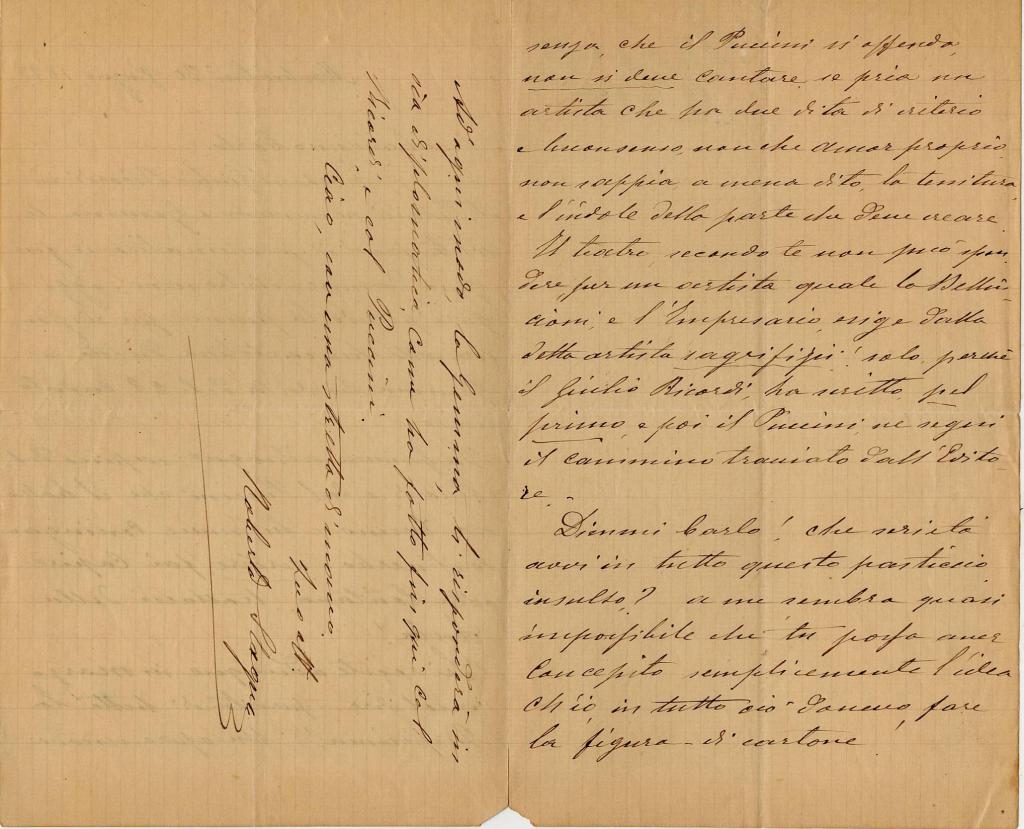 senza, che il Puccini si offenda,
non si deve cantare, se pria un
artista che ha due dita di criterio
e buonsenso, non che amor proprio
non sappia, a mena dito, la tessitura,
e l'indole della parte che deve creare.
Il teatro, secondo te non può spen-
dere per un artista quale la Bellin-
cioni, e l'Impresario, esige dalla
detta artista sagrifizii! solo, perchè
il Giulio Ricordi, ha scritto, pel
primo, e poi il Puccini, ne seguì
il cammino traviato dall'Edito-
re. -
Dimmi Carlo! che serietà
avvi in tutto questo pasticcio
insulso? a me sembra quasi
impossibile che tu possa aver
concepito semplicemente l'idea
ch'io, in tutto ciò dovevo, fare
la figura - di cartone
Ad' ogni modo, la Gemma ti risponderà in
via diplomatica, come ha fatto fin qui col
Ricordi e col Puccini.
Ciao, con una stretta di mano.
Tuo aff.
Roberto Stagno